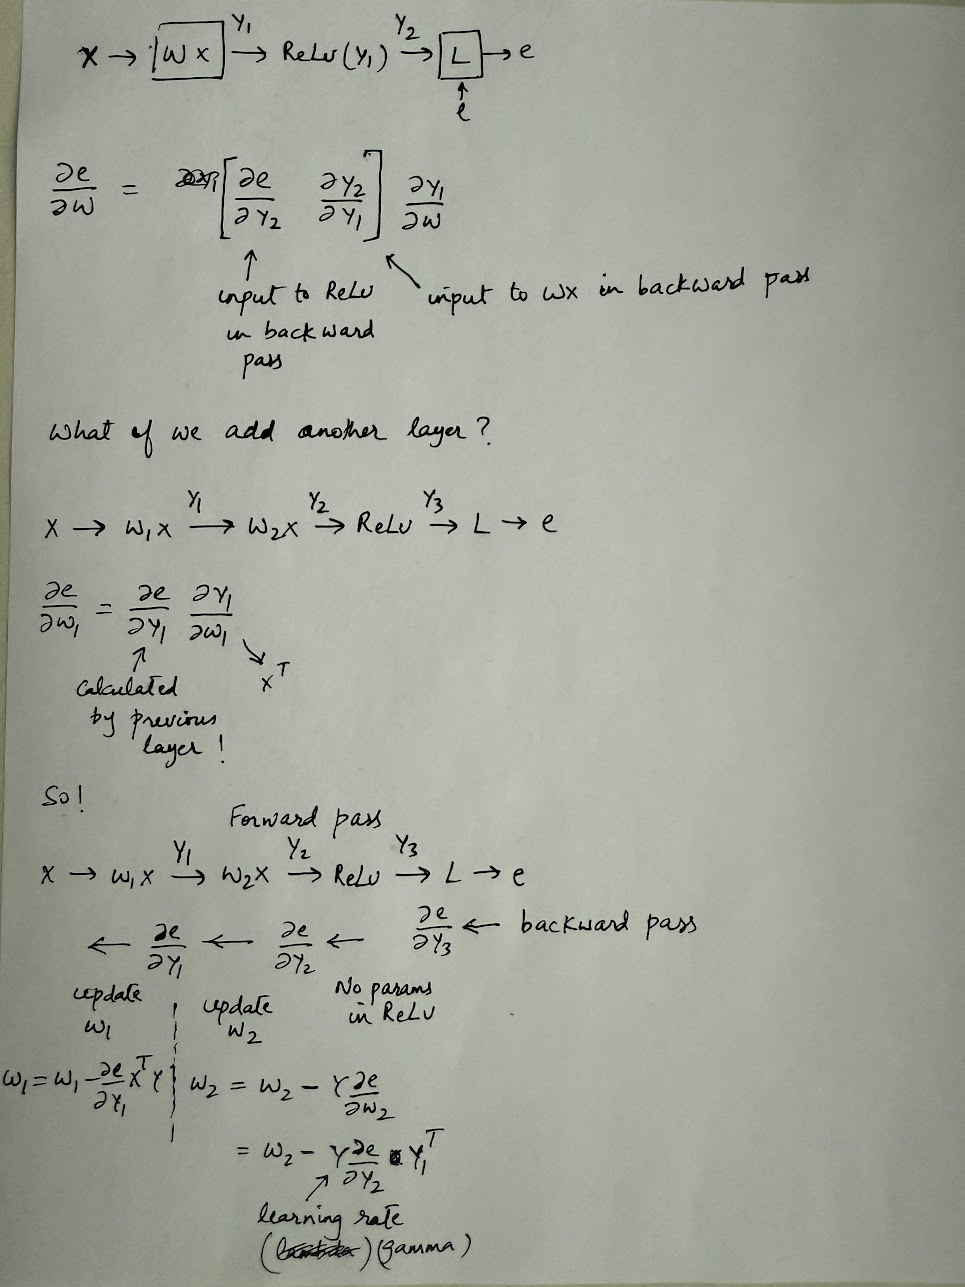 X → [Wx] Y₁→ ReLu(Y₁) Y₂→ [L] → e
↑
l
∂e/∂W = [∂e/∂Y₂ ∂Y₂/∂Y₁] ∂Y₁/∂W
↑ input to ReLu in backward pass
↖ input to Wx in backward pass
What if we add another layer?
X → W₁x Y₁→ W₂x Y₂→ ReLu Y₃→ L → e
∂e/∂W₁ = ∂e/∂Y₁ ∂Y₁/∂W₁
↘ Xᵀ
↑
Calculated
by previous
layer!
So!
Forward pass
X → W₁x Y₁→ W₂x Y₂→ ReLu Y₃→ L → e
← ∂e/∂Y₁ ← ∂e/∂Y₂ ← ∂e/∂Y₃ ← backward pass
update W₁
update W₂
No params in ReLu
W₁ = W₁ - ∂e/∂Y₁ Xᵀ γ
W₂ = W₂ - γ ∂e/∂W₂
= W₂ - γ ∂e/∂Y₂ Y₁ᵀ
↗
learning rate
(gamma)